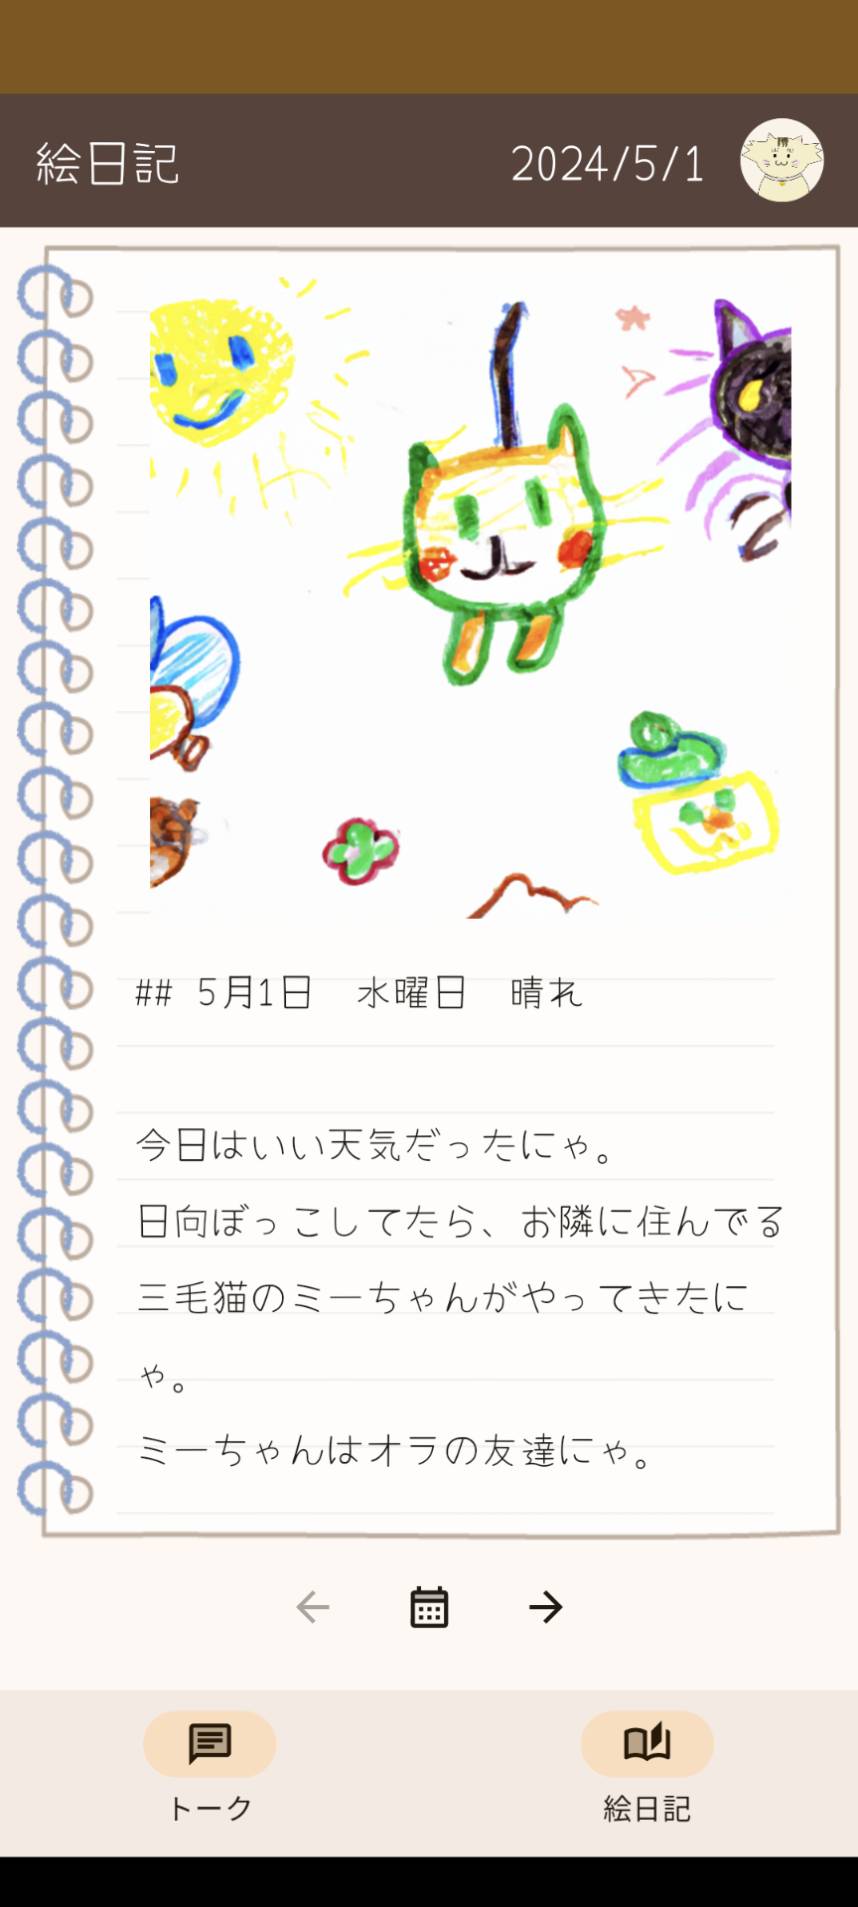 絵日記 2024/5/1
## 5月1日　水曜日　晴れ
今日はいい天気だったにゃ。
日向ぼっこしてたら、お隣に住んでる
三毛猫のミーちゃんがやってきたに
ゃ。
ミーちゃんはオラの友達にゃ。
トーク 絵日記